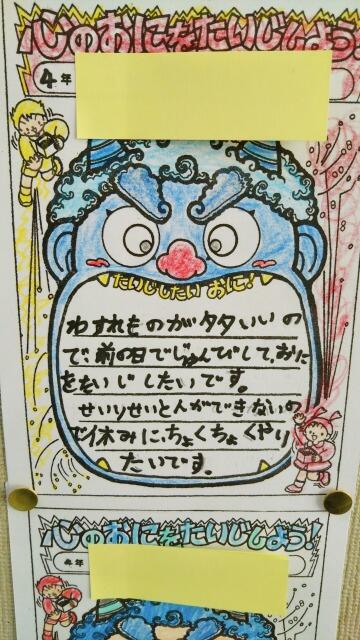 心のおにをたいじしよう!
4年
たいじしたい おに!
わすれものがタタいいの
で、前の日でじゅんびして、おに
をたいじしたいです。
せいりせいとんができないの
で休みに、ちょくちょくやり
たいです。
心のおにをたいじしよう!
4年